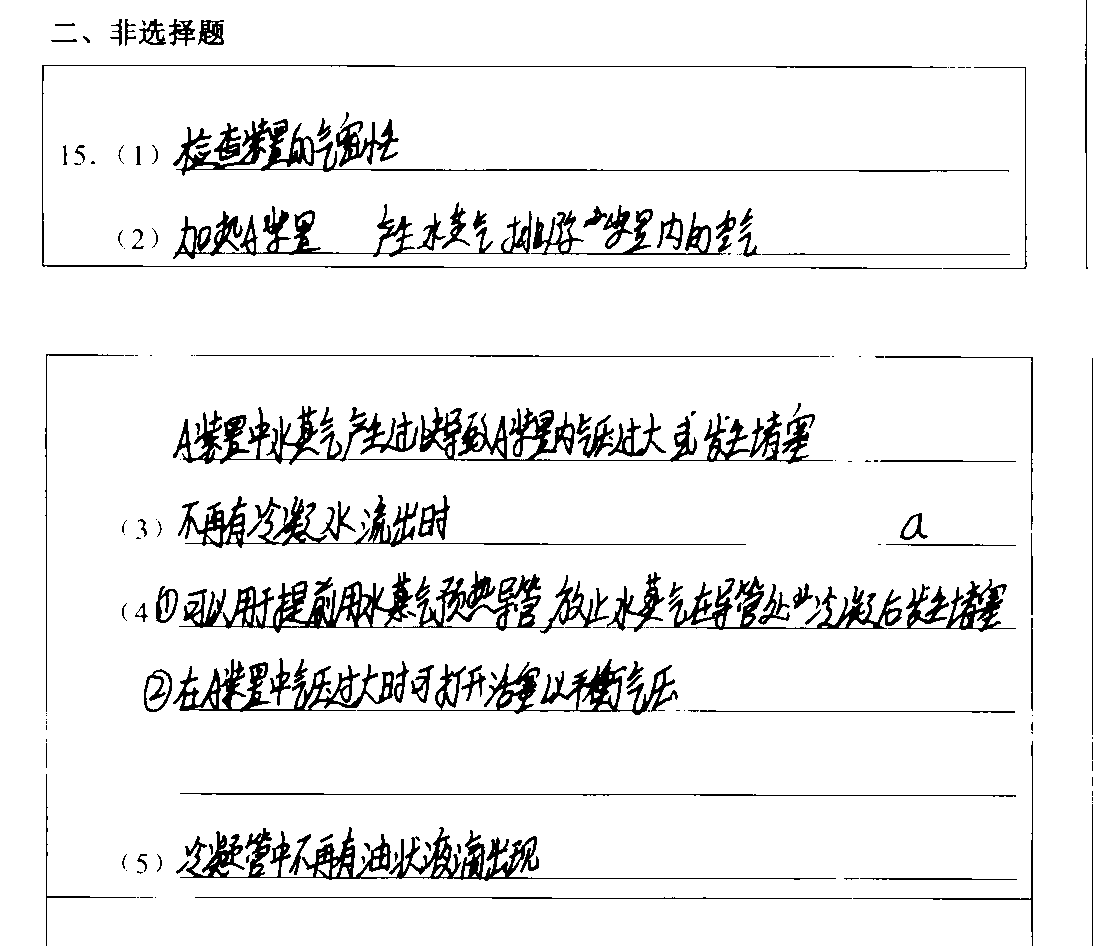 二、非选择题
15.（1）检查装置的气密性
（2）加热A装置 产生水蒸气排除装置内的空气
A装置中水蒸气产生过快导致A装置内气压过大或发生堵塞
（3）不再有冷凝水流出时 a
（4①可以用于提前用水蒸气预热导管,放止水蒸气在导管处冷凝后发生堵塞
②在A装置中气压过大时可打开活塞以平衡气压
（5）冷凝管中不再有油状液滴出现